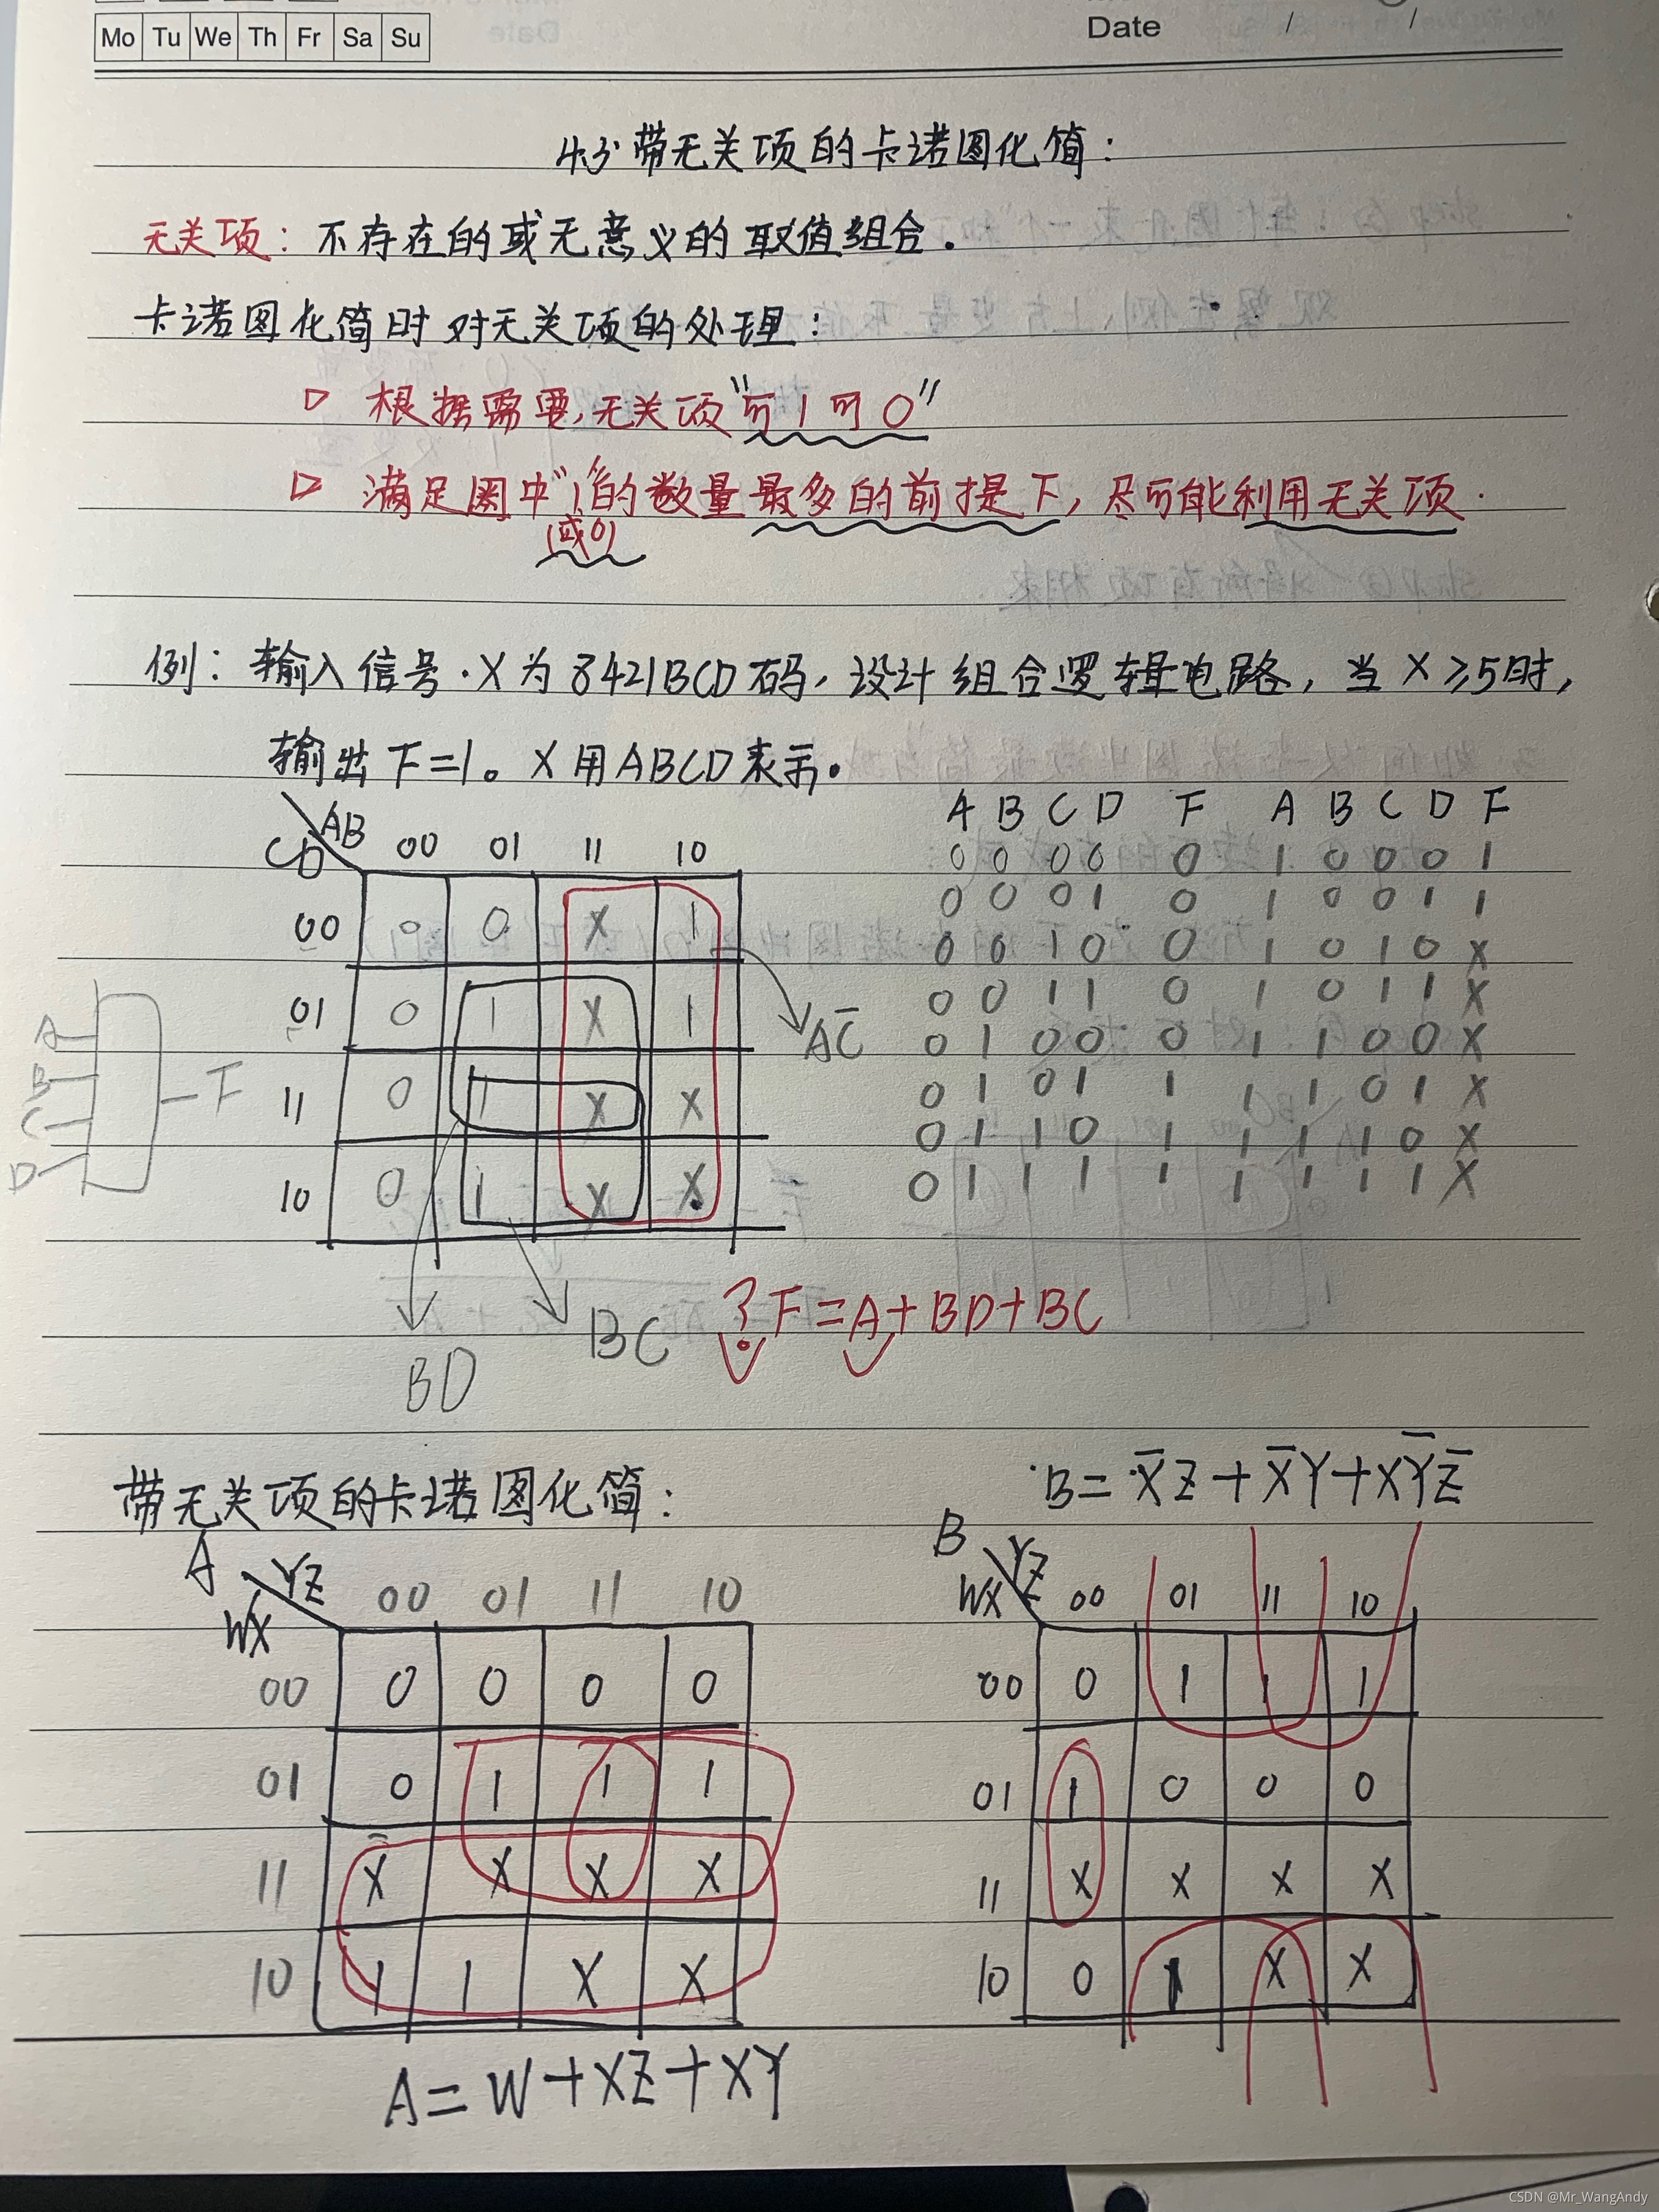 Mo Tu We Th Fr Sa Su
Date / /
4.3 带无关项的卡诺图化简：
无关项：不存在的或无意义的取值组合.
卡诺图化简时对无关项的处理：
▷ 根据需要,无关项"可1可0"
▷ 满足圈中"1"的数量最多的前提下,尽可能利用无关项.
(或0)
例：输入信号.X为8421BCD码,设计组合逻辑电路,当X≥5时,
输出F=1。X用ABCD表示.
AB
CD
00 01 11 10
00 0 0 X 1
01 0 1 X 1
11 0 1 X X
10 0 1 X X
AC̅
BD
BC
A
B
C
D
F
A B C D F A B C D F
0 0 0 0 0 1 0 0 0 1
0 0 0 1 0 1 0 0 1 1
0 0 1 0 0 1 0 1 0 X
0 0 1 1 0 1 0 1 1 X
0 1 0 0 0 1 1 0 0 X
0 1 0 1 1 1 1 0 1 X
0 1 1 0 1 1 1 1 0 X
0 1 1 1 1 1 1 1 1 X
? F=A+BD+BC
带无关项的卡诺图化简：
A
YZ
WX
00 01 11 10
00 0 0 0 0
01 0 1 1 1
11 X X X X
10 1 1 X X
A=W+XZ+XY
B=X̅Z+X̅Y+XY̅Z̅
B
YZ
WX
00 01 11 10
00 0 1 1 1
01 1 0 0 0
11 X X X X
10 0 1 X X
CSDN @Mr_WangAndy